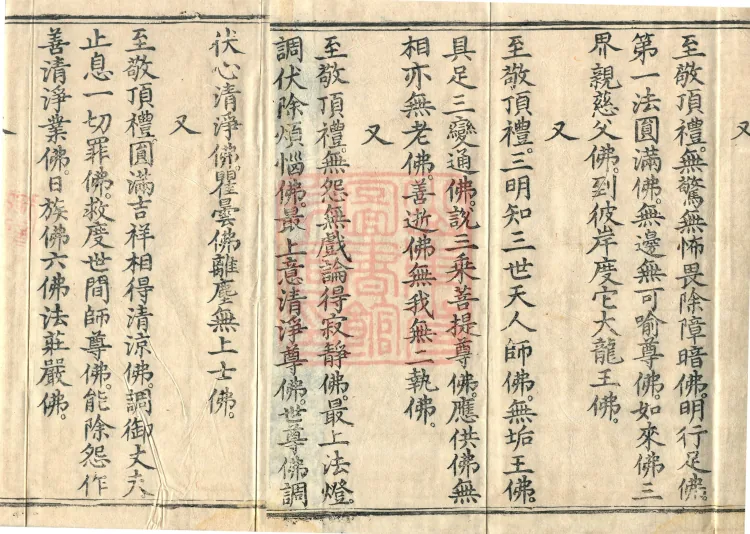 又
至敬頂禮。無驚無怖畏除障暗佛。明行足佛。
第一法圓滿佛。無邊無可喻尊佛。如來佛三
界親慈父佛。到彼岸度它大龍王佛。
又
至敬頂禮。三明知三世天人師佛。無垢王佛。
具足三變通佛。說三乘菩提尊佛。應供佛無
相亦無老佛。善逝佛無我無二執佛。
又
至敬頂禮。無怨無戲論得寂靜佛。最上法燈。
調伏除煩惱佛。最上意清淨尊佛。世尊佛調
伏心清淨佛。瞿曇佛離塵無上士佛。
又
至敬頂禮圓滿吉祥相得清涼佛。調御丈夫
止息一切罪佛。救度世間師尊佛。能除怨作
善清淨業佛。日族佛六佛法莊嚴佛。
又